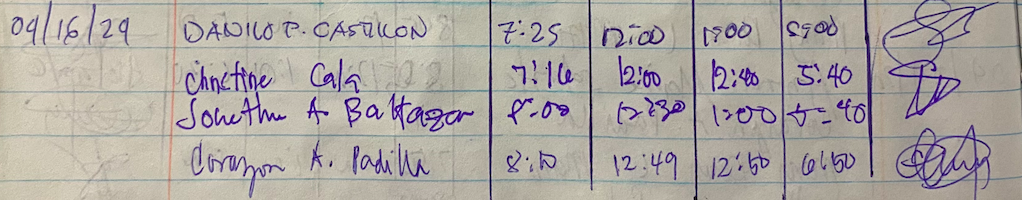 09/16/29 DANILO P. CASTILLON 7:25 12:00 1:00 5:00
Christine Cala 7:16 12:00 12:40 5:40
A. Baltazar 8:00 12:30 1:00 5:40
Corazon A. Padilla 8:10 12:49 12:50 6:50